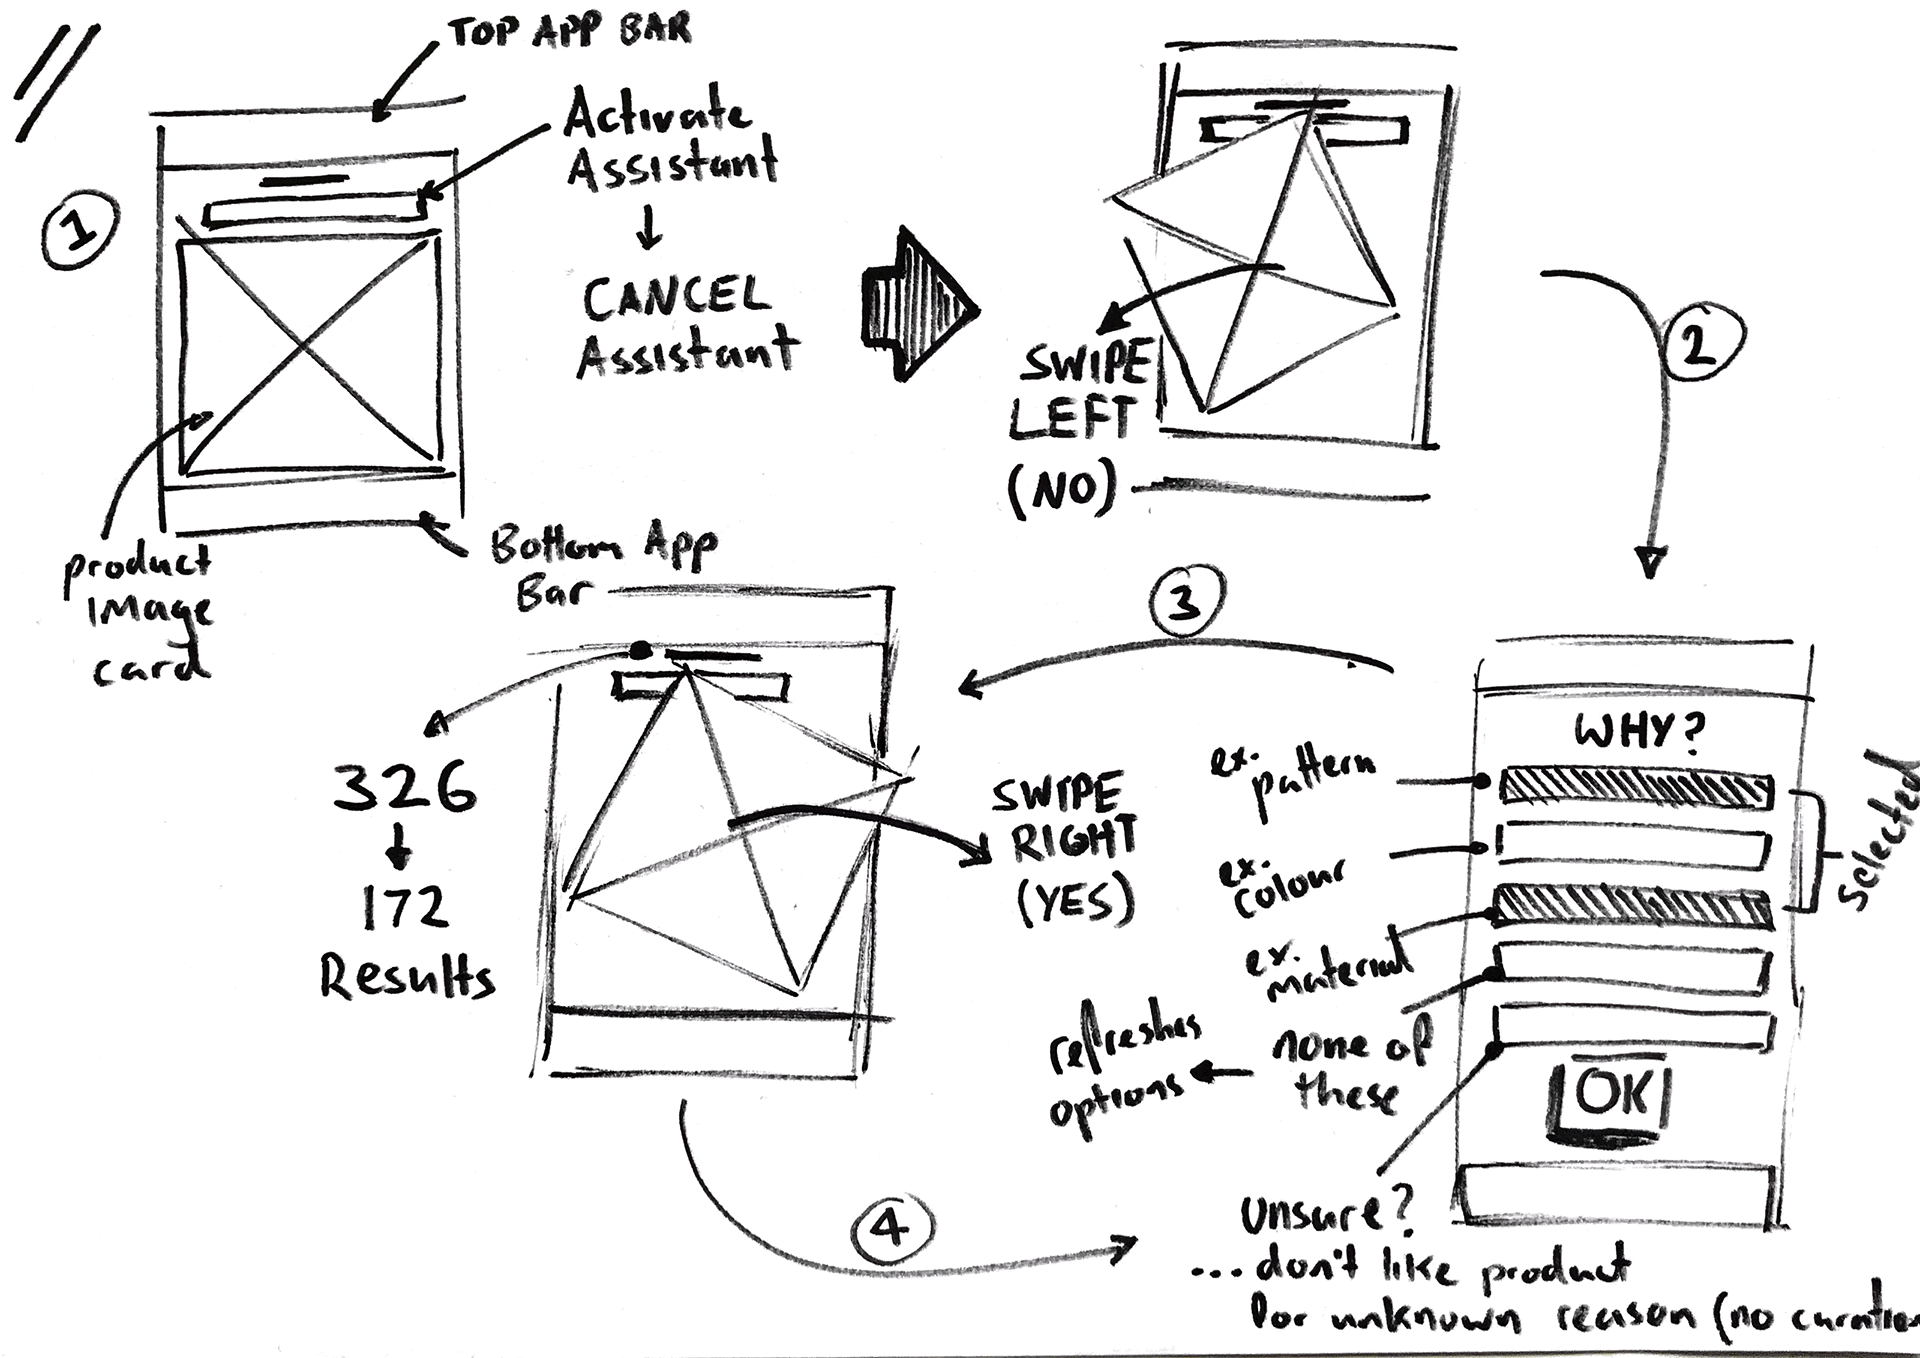 TOP APP BAR
Activate
Assistant
CANCEL
Assistant
1
product
image
card
Bottom App
Bar
SWIPE
LEFT
(NO)
2
WHY?
ex.
pattern
ex.
colour
ex.
material
selected
none of
these
refreshes
options
OK
unsure?
...don't like product
for unknown reason (no curation
3
326
172
Results
SWIPE
RIGHT
(YES)
4